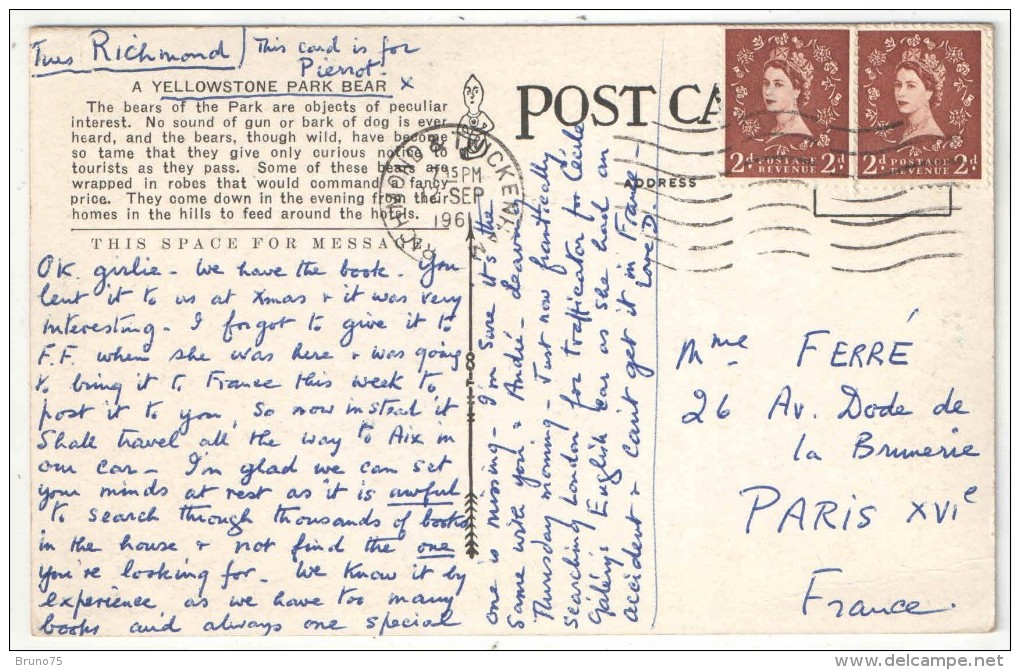 Tues Richmond
This card is for
Pierrot.
A YELLOWSTONE PARK BEAR x
The bears of the Park are objects of peculiar
interest. No sound of gun or bark of dog is ever
heard, and the bears, though wild, have become
so tame that they give only curious notice to
tourists as they pass. Some of these bears are
wrapped in robes that would command a fancy
price. They come down in the evening from their
homes in the hills to feed around the hotels.
THIS SPACE FOR MESSAGE.
OK girlie - We have the book. You
lent it to us at Xmas & it was very
interesting - I forgot to give it to
F.F. when she was here & was going
to bring it to France this week to
post it to you. So now instead it
shall travel all the way to Aix in
our car - I'm glad we can set
your minds at rest as it is awful
to search through thousands of books
in the house & not find the one
you're looking for. We know it by
experience as we have too many
books and always one special
one is missing - I'm sure it's the
same with you & André - leaving
Thursday morning - Just now frantically
searching London for trafficator for Cécile
English car as she had an
accident & can't get it in France -
Love D.
POST CA
ADDRESS
RICHMOND & TWICKENHAM
15 PM
SEP
196
2d POSTAGE REVENUE 2d
2d POSTAGE REVENUE 2d
Mme FERRÉ
26 Av. Dode de
la Brunerie
PARIS XVIe
France.
Bruno75
delcampe.net